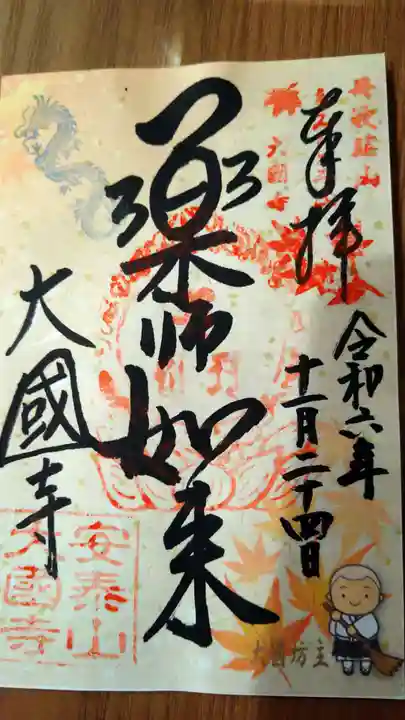 奉拝
令和六年
十一月二十四日
薬師如来
大國寺
安泰山
大國寺
大國坊主